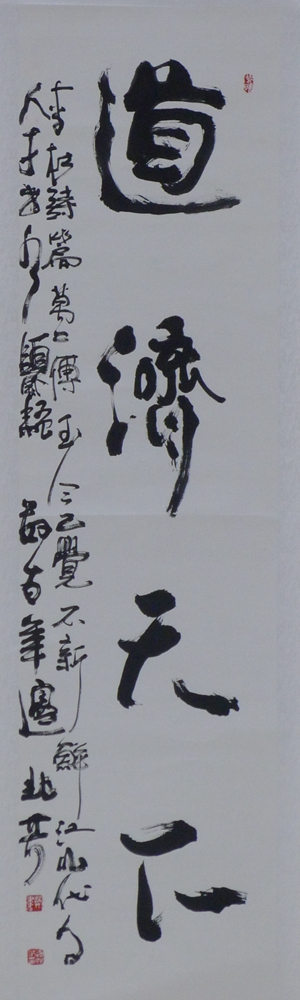 道濟天下
李杜詩篇萬口傳至今已覺不新鮮江山代有
人才出各領風騷數百年